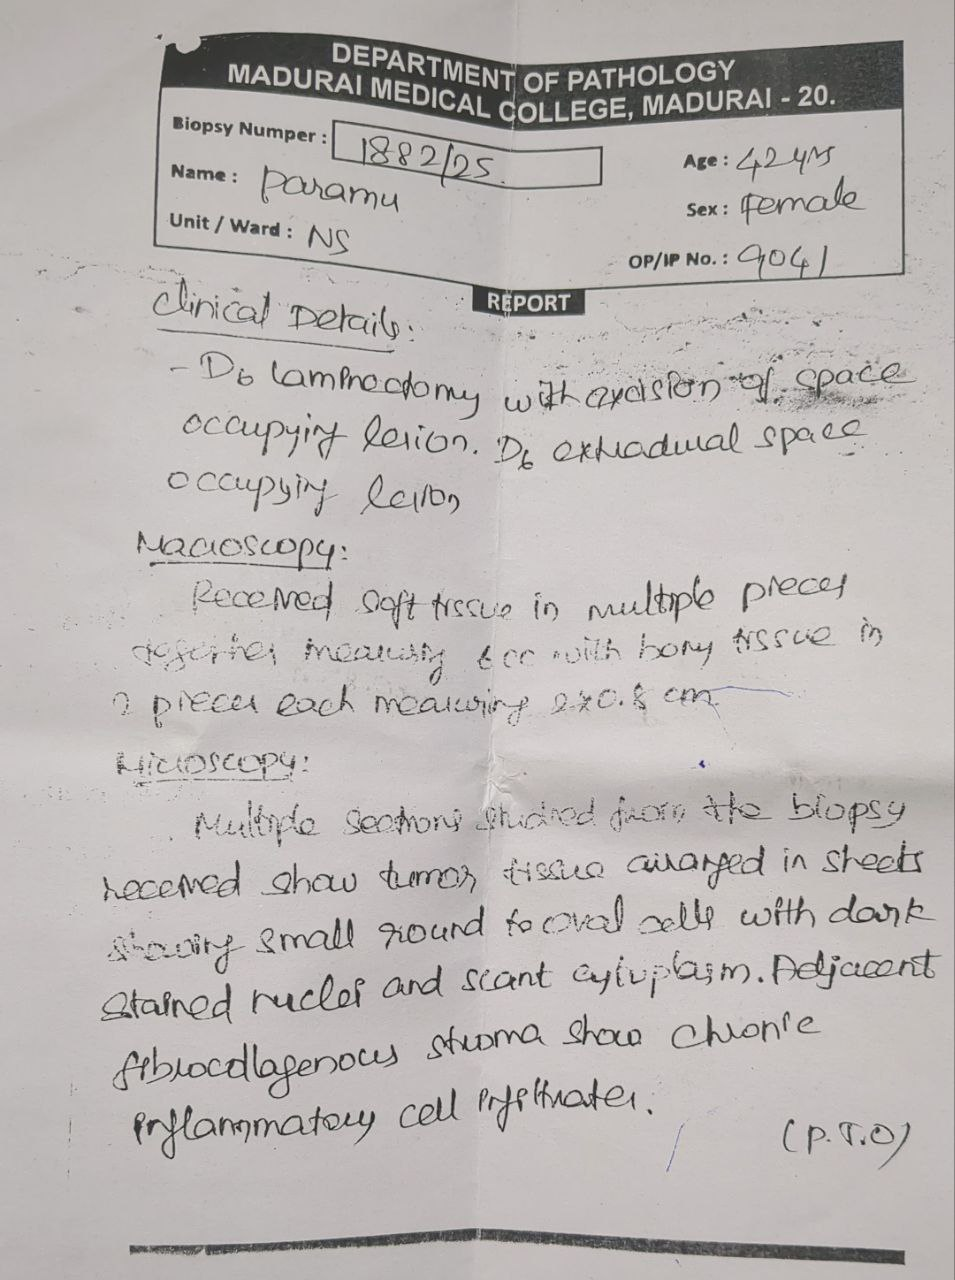 DEPARTMENT OF PATHOLOGY
MADURAI MEDICAL COLLEGE, MADURAI - 20.
Biopsy Numper : 1882/25.
Age : 42 yrs
Name : Paramu
Sex : Female
Unit / Ward : NS
OP/IP No. : 9041
REPORT
Clinical Details:
- D6 laminectomy with excision of space
occupying lesion. D6 extradural space
occupying lesion
Macroscopy:
Received soft tissue in multiple pieces
together measuring 6cc with bony tissue in
2 pieces each measuring 2x0.8 cm
Microscopy:
Multiple sections studied from the biopsy
received show tumor tissue arranged in sheets
showing small round to oval cells with dark
stained nuclei and scant cytoplasm. Adjacent
fibrocollagenous stroma show chronic
inflammatory cell infiltrates.
(P.T.O)